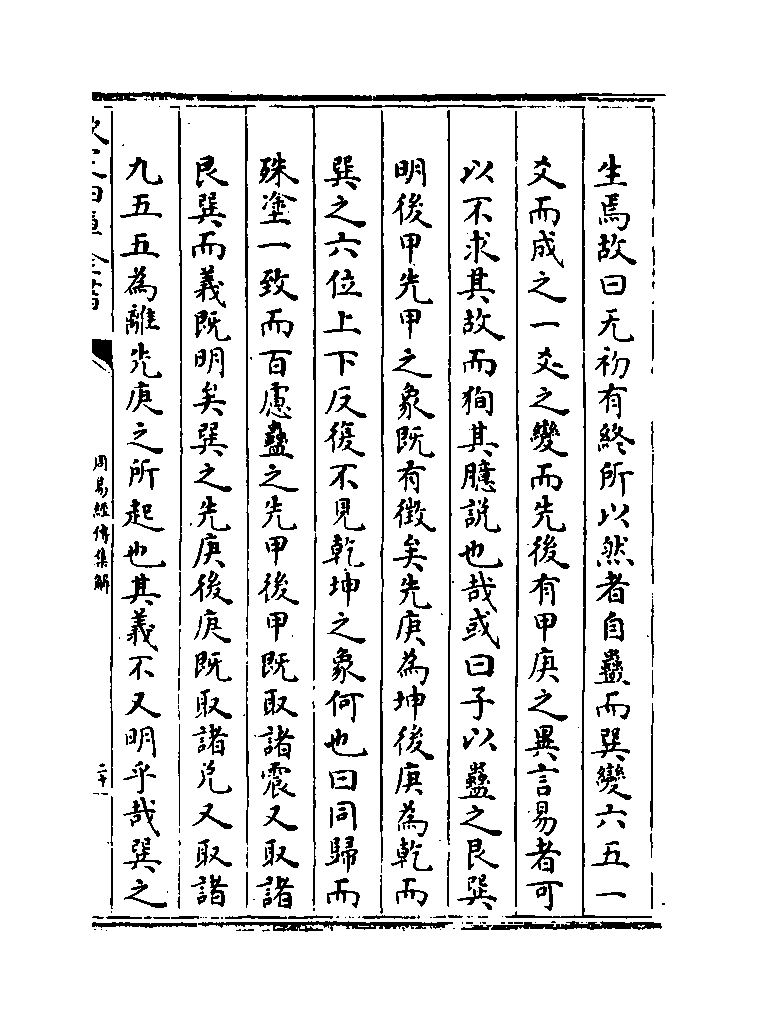 生焉故曰无初有終所以然者自蠱而巽變六五一
爻而成之一爻之變而先後有甲庚之異言易者可
以不求其故而狥其臆說也哉或曰子以蠱之艮巽
明後甲先甲之象既有徵矣先庚為坤後庚為乾而
巽之六位上下反復不見乾坤之象何也曰同歸而
殊塗一致而百慮蠱之先甲後甲既取諸震又取諸
艮巽而義既明矣巽之先庚後庚既取諸兌又取諸
九五五為離先庚之所起也其義不又明乎哉巽之
周易經傳集解
二十